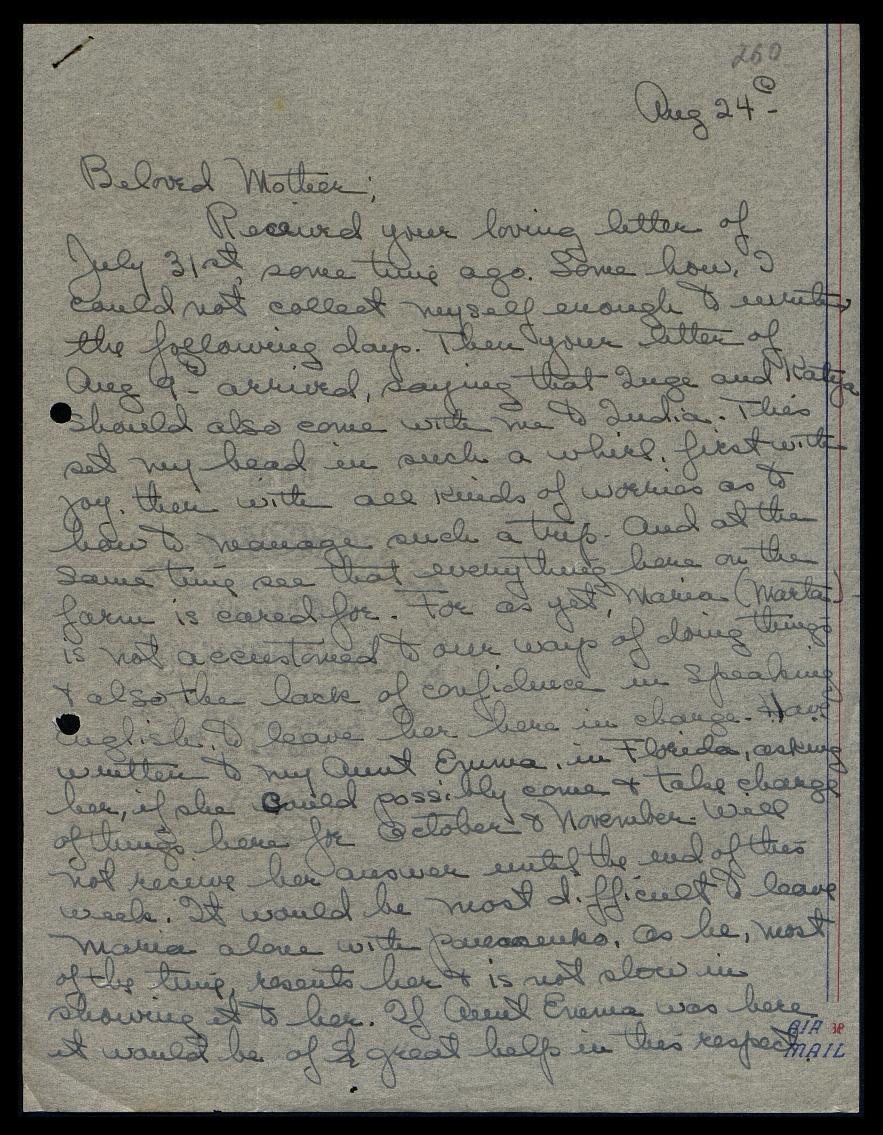 260
Aug 24th
Beloved Mother;
Received your loving letter of
July 31st, some time ago. Some how, I
could not collect myself enough to write,
the following days. Then your letter of
Aug 9th arrived, saying that Inge and Katya
should also come with me to India. This
set my head in such a whirl, first with
joy, then with all kinds of worries as to
how to manage such a trip. And at the
same time see that everything here on the
farm is cared for. For as yet, Maria (Marta)
is not accustomed to our ways of doing things
& also the lack of confidence in speaking
English, to leave her here in charge. Have
written to my Aunt Emma, in Florida, asking
her, if she could possibly come & take charge
of things here for October & November. Will
not receive her answer until the end of this
week. It would be most difficult to leave
Maria alone with, as he, most
of the time, resents her & is not slow in
showing it to her. If Aunt Emma was here
it would be of great help in this respect.
AIR
MAIL